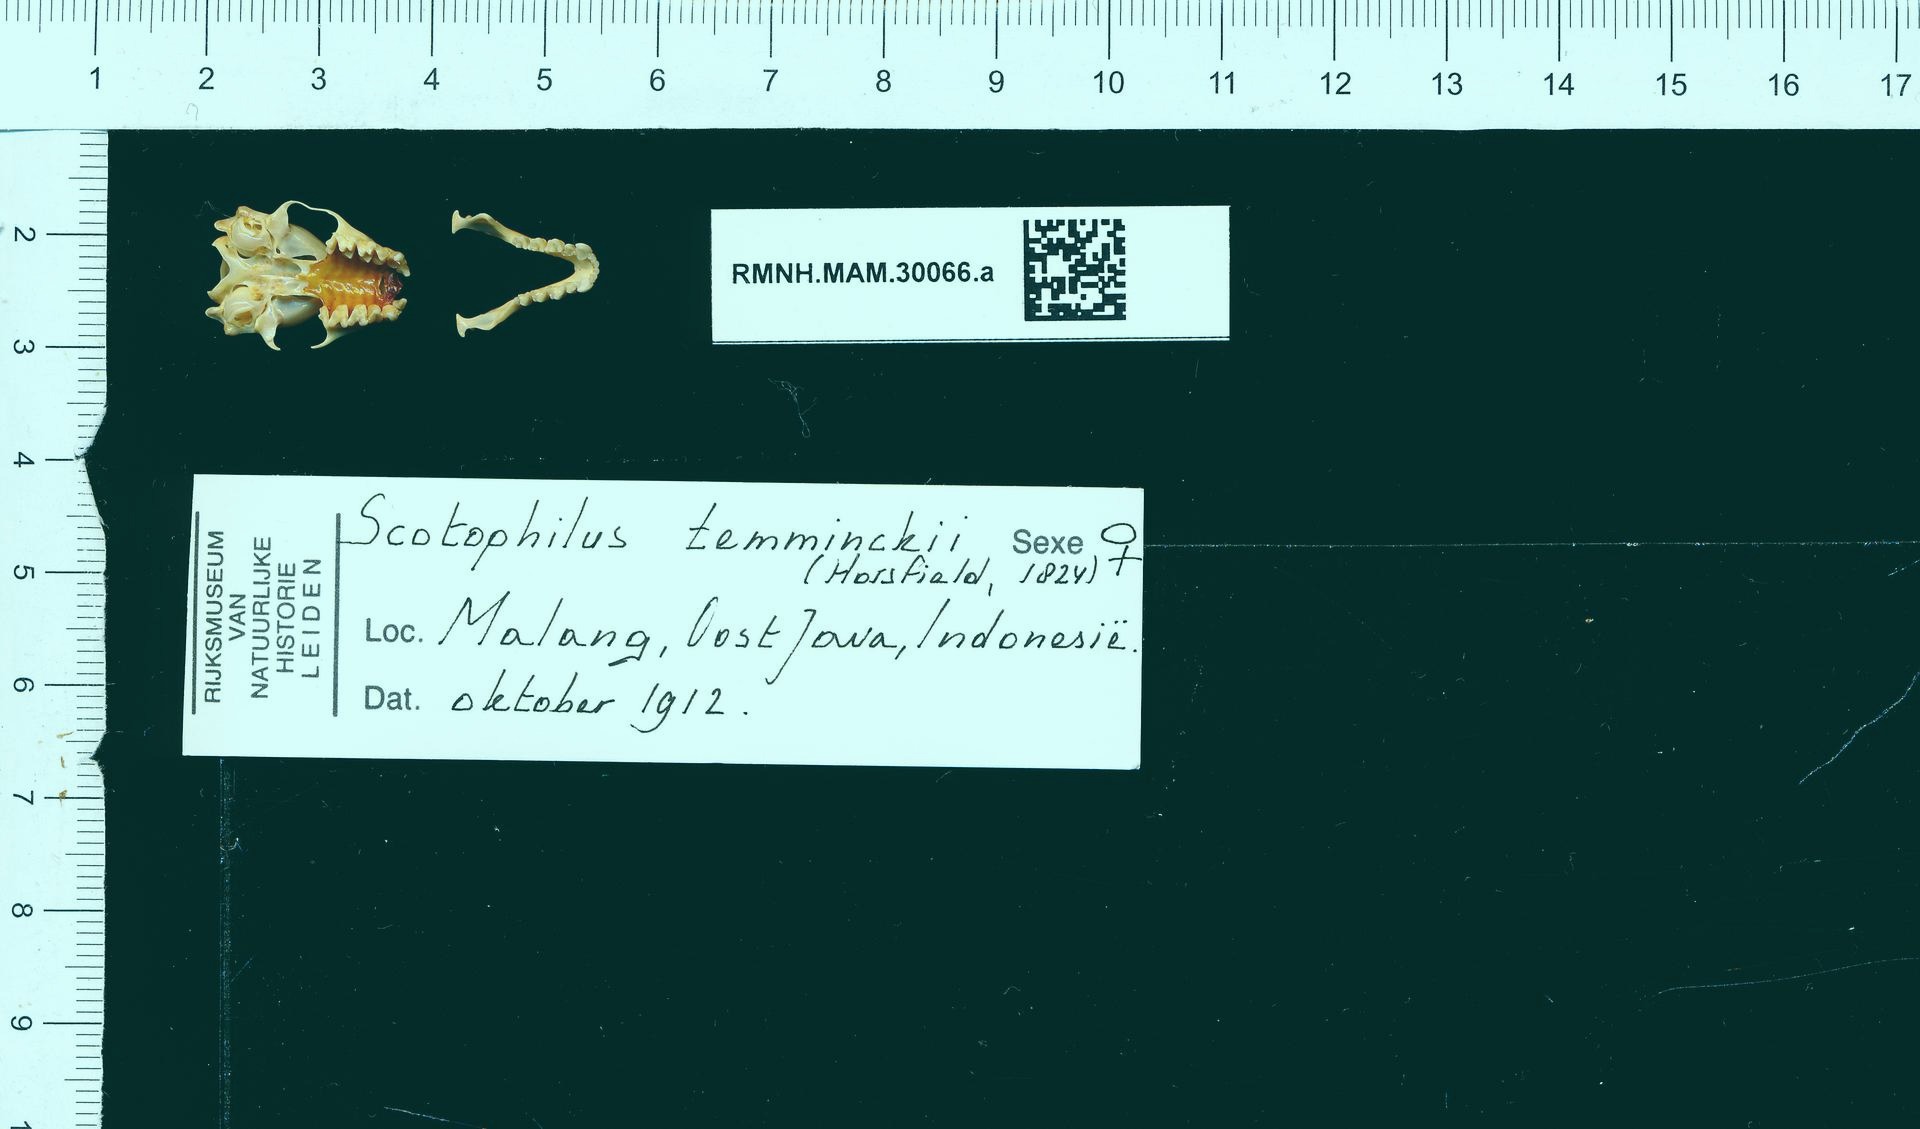 1 2 3 4 5 6 7 8 9 10 11 12 13 14 15 16 17
2
3
4
5
6
7
8
9
RMNH.MAM.30066.a
RIJKSMUSEUM
VAN
NATUURLIJKE
HISTORIE
LEIDEN
Scotophilus temminckii Sexe ♀
(Horsfield, 1824)
Loc. Malang, Oost Java, Indonesië.
Dat. oktober 1912.